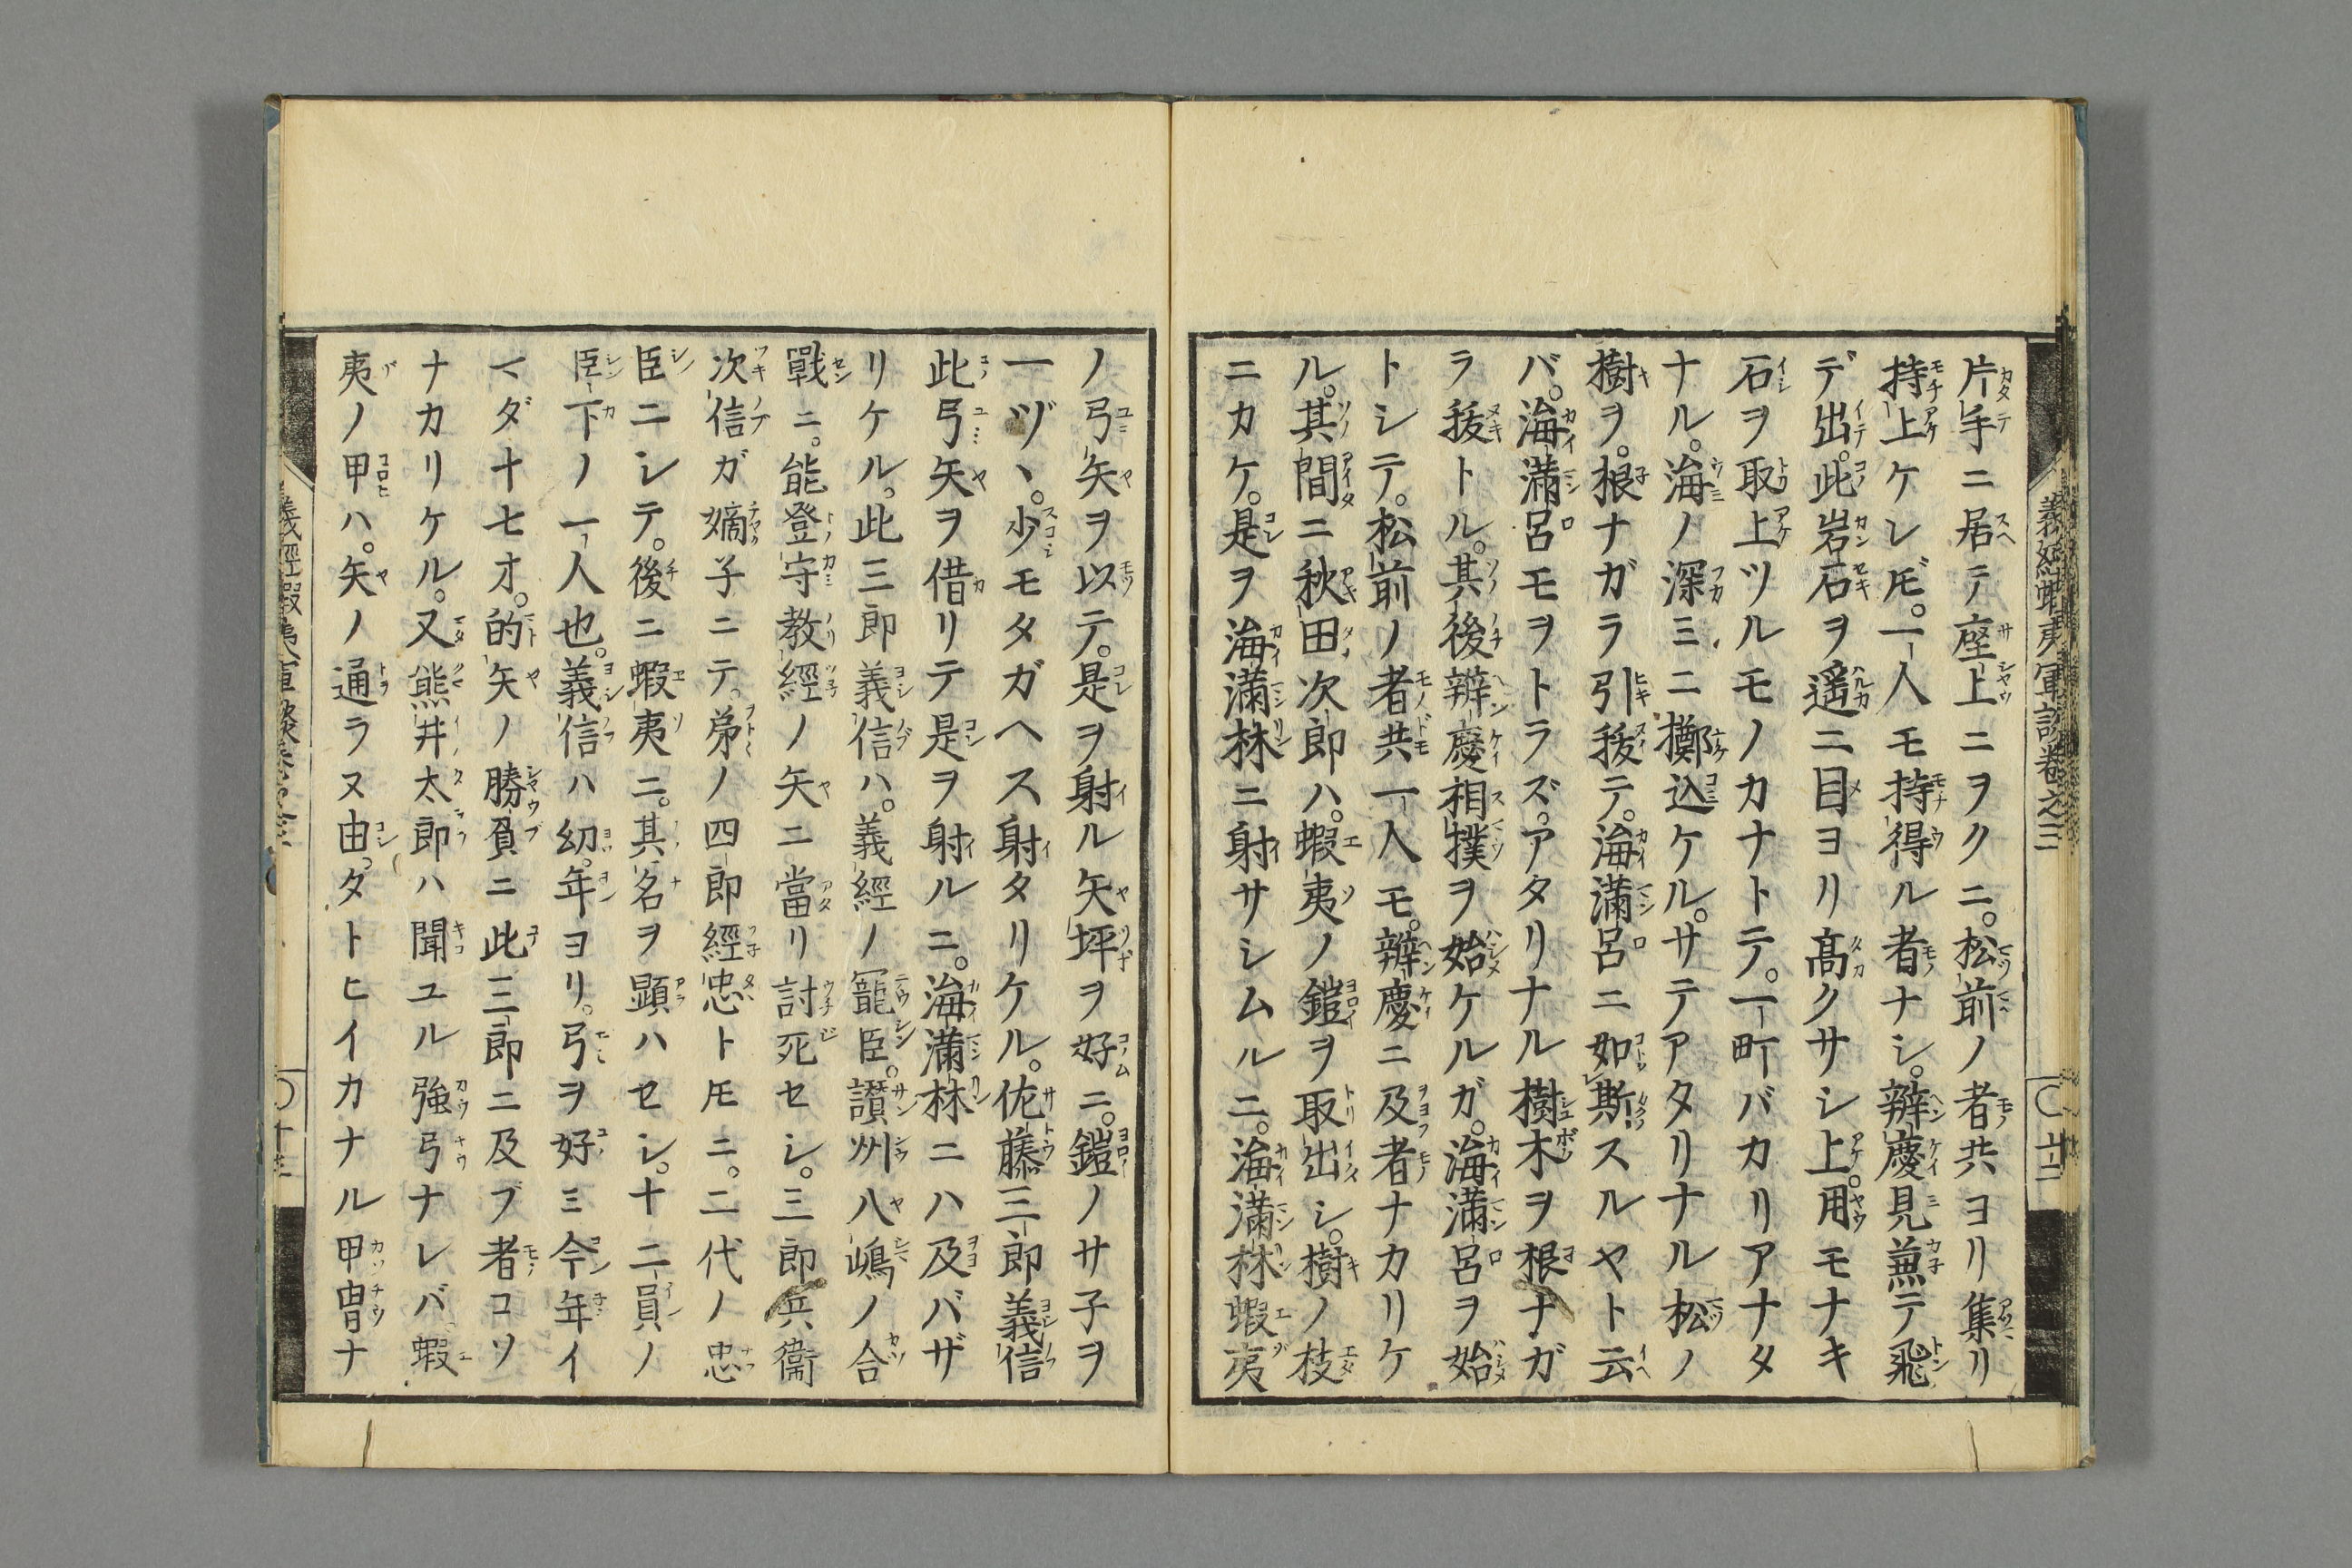 義經蝦夷軍談卷之三 〇十二
片手ニ居テ座上ニヲクニ。松前ノ者共ヨリ集リ
持上ケレドモ。一人モ持得ル者ナシ。辨慶見兼テ飛
デ出。此岩石ヲ遥ニ目ヨリ髙クサシ上。用モナキ
石ヲ取上ツルモノカナトテ。一町バカリアナタ
ナル。海ノ深ミニ擲込ケル。サテアタリナル松ノ
樹ヲ。根ナガラ引拔テ。海満呂ニ如斯スルヤト云
バ。海満呂モヲトラズ。アタリナル樹木ヲ根ナガ
ラ拔トル。其後辨慶相撲ヲ始ケルガ。海満呂ヲ始
トシテ。松前ノ者共一人モ。辨慶ニ及者ナカリケ
ル。其間ニ秋田次郎ハ。蝦夷ノ鎧ヲ取出シ。樹ノ枝
ニカケ。是ヲ海満林ニ射サシムルニ。海満林蝦夷
ノ弓矢ヲ以テ。是ヲ射ル矢坪ヲ好ニ。鎧ノサ子ヲ
一ヅヽ。少モタガヘス射タリケル。佐藤三郎義信
此弓矢ヲ借リテ是ヲ射ルニ。海満林ニハ及バザ
リケル。此三郎義信ハ。義經ノ寵臣。讃州八嶋ノ合
戰ニ。能登守教經ノ矢ニ當リ討死セシ。三郎兵衞
次信ガ嫡子ニテ。弟ノ四郎經忠トモニ。二代ノ忠
臣ニシテ。後ニ蝦夷ニ。其名ヲ顕ハセシ。十二員ノ
臣下ノ一人也。義信ハ幼年ヨリ。弓ヲ好ミ今年イ
マダ十七才。的矢ノ勝負ニ此三郎ニ及ブ者コソ
ナカリケル。又熊井太郎ハ聞ユル強弓ナレバ。蝦
夷ノ甲ハ。矢ノ通ラヌ由。タトヒイカナル甲冑ナ
義經蝦夷軍談卷之三 〇十三